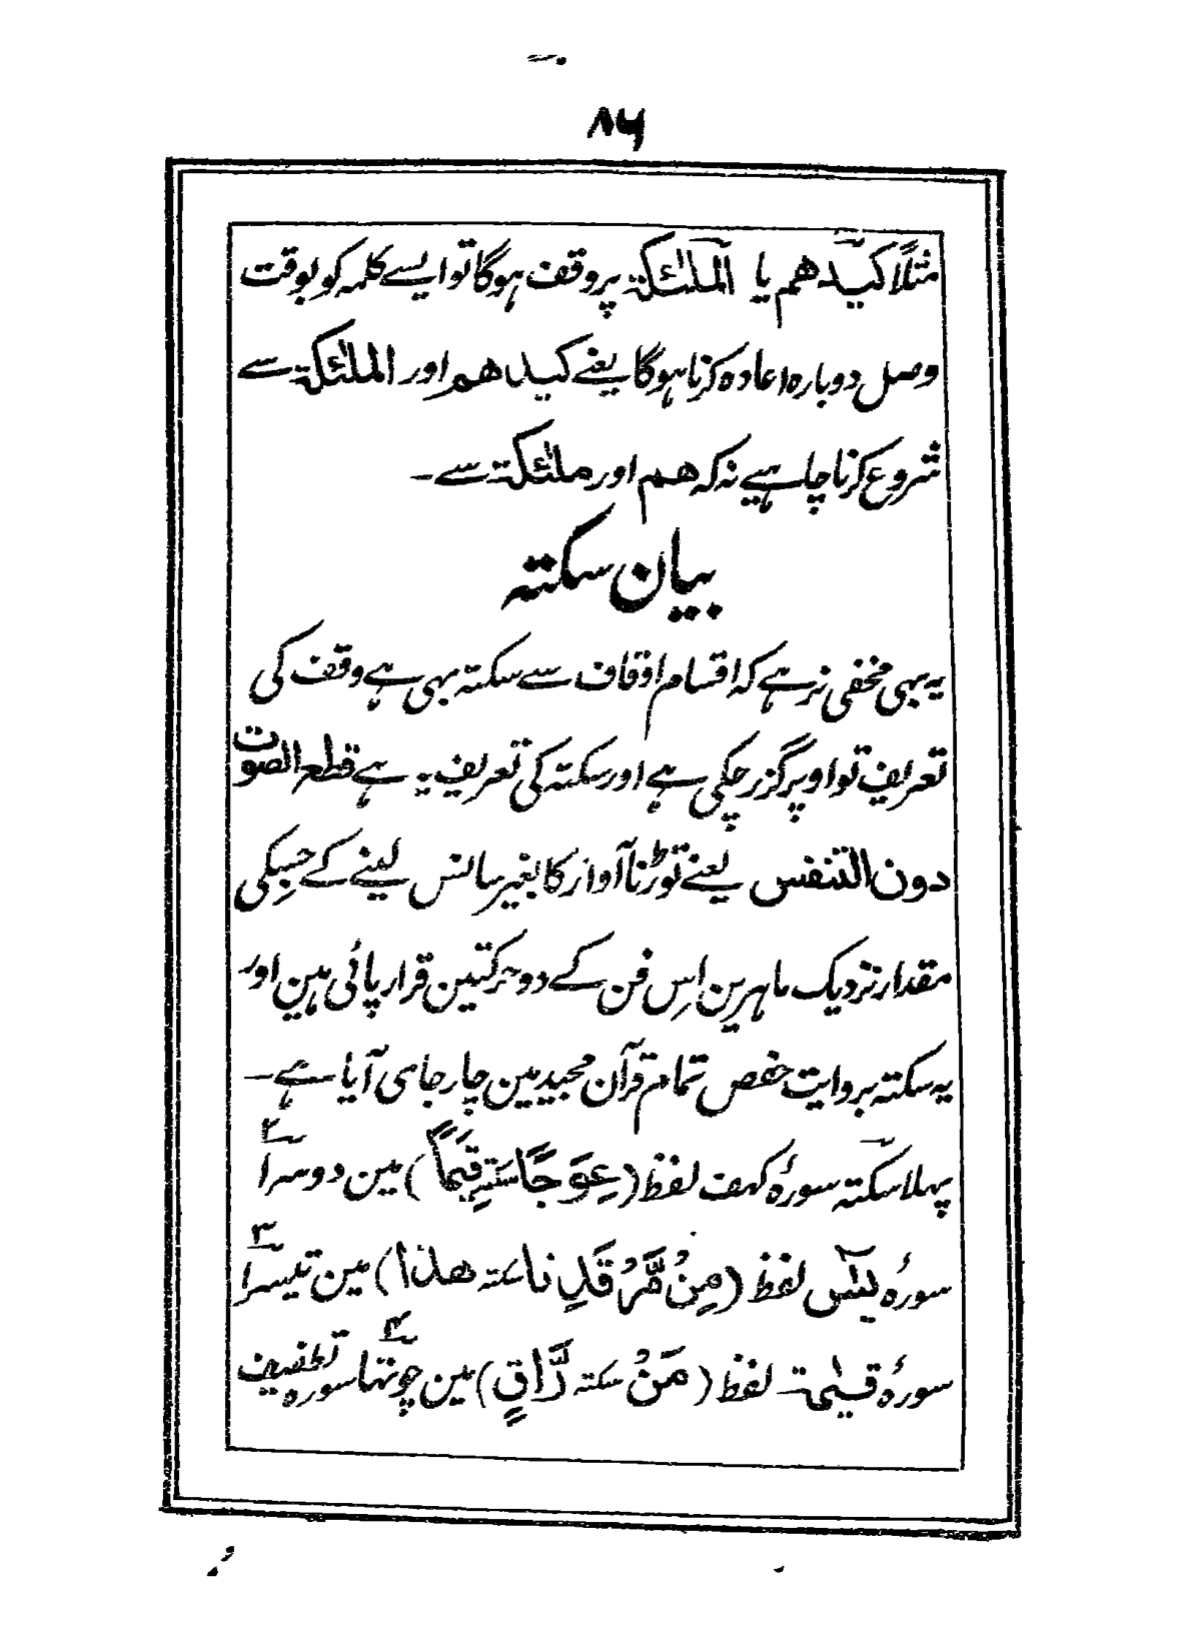 ۸۶
مثلاً کیدھم یا الملٰئکۃ پر وقف ہوگا تو ایسے کلمہ کو بوقت
وصل دوبارہ اعادہ کرنا ہوگا یعنے کیدھم اور الملٰئکۃ سے
شروع کرنا چاہیے نہ کہ ھم اور ملٰئکۃ سے۔
بیان سکتہ
یہ بہی مخفی نرہے کہ اقسام اوقاف سے سکتہ بہی ہے وقف کی
تعریف تو اوپر گزر چکی ہے اور سکتہ کی تعریف یہ ہے قطع الصوت
دون التنفس یعنے توڑنا آواز کا بغیر سانس لینے کے جسکی
مقدار نزدیک ماہرین اِس فن کے دو حرکتین قرار پائی ہین اور
یہ سکتہ بروایت حفص تمام قرآن مجید مین چار جای آیا ہے۔
پہلا سکتہ سورۂ کہف لفظ (عِوَجًا سکتہ قَیِّمًا) مین دوسرا ۲
سورۂ یٰسٓ لفظ (مِنْ مَّرْقَدِنا سکتہ ھذا) مین تیسرا ۳
سورۂ قیٰمۃ لفظ (مَنْ سکتہ رَّاقٍ) مین چوتہا ۴ سورہ تطفیف